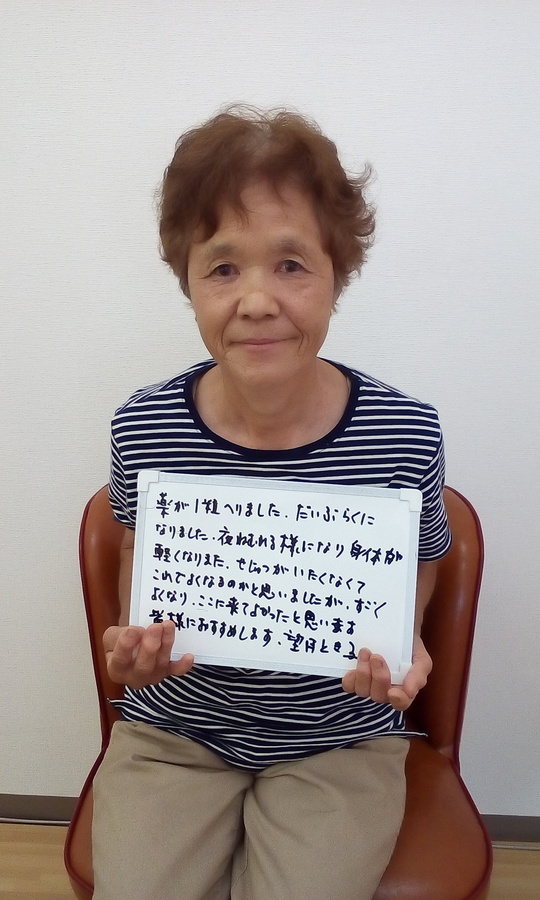 薬が1粒へりました。だいぶらくに
なりました。夜ねむれる様になり身体が
軽くなりまた、せじゅつがいたくなくて
これでよくなるのかと思いましたが、すごく
よくなり、ここに来てよかったと思います
皆様におすすめします、望月とき